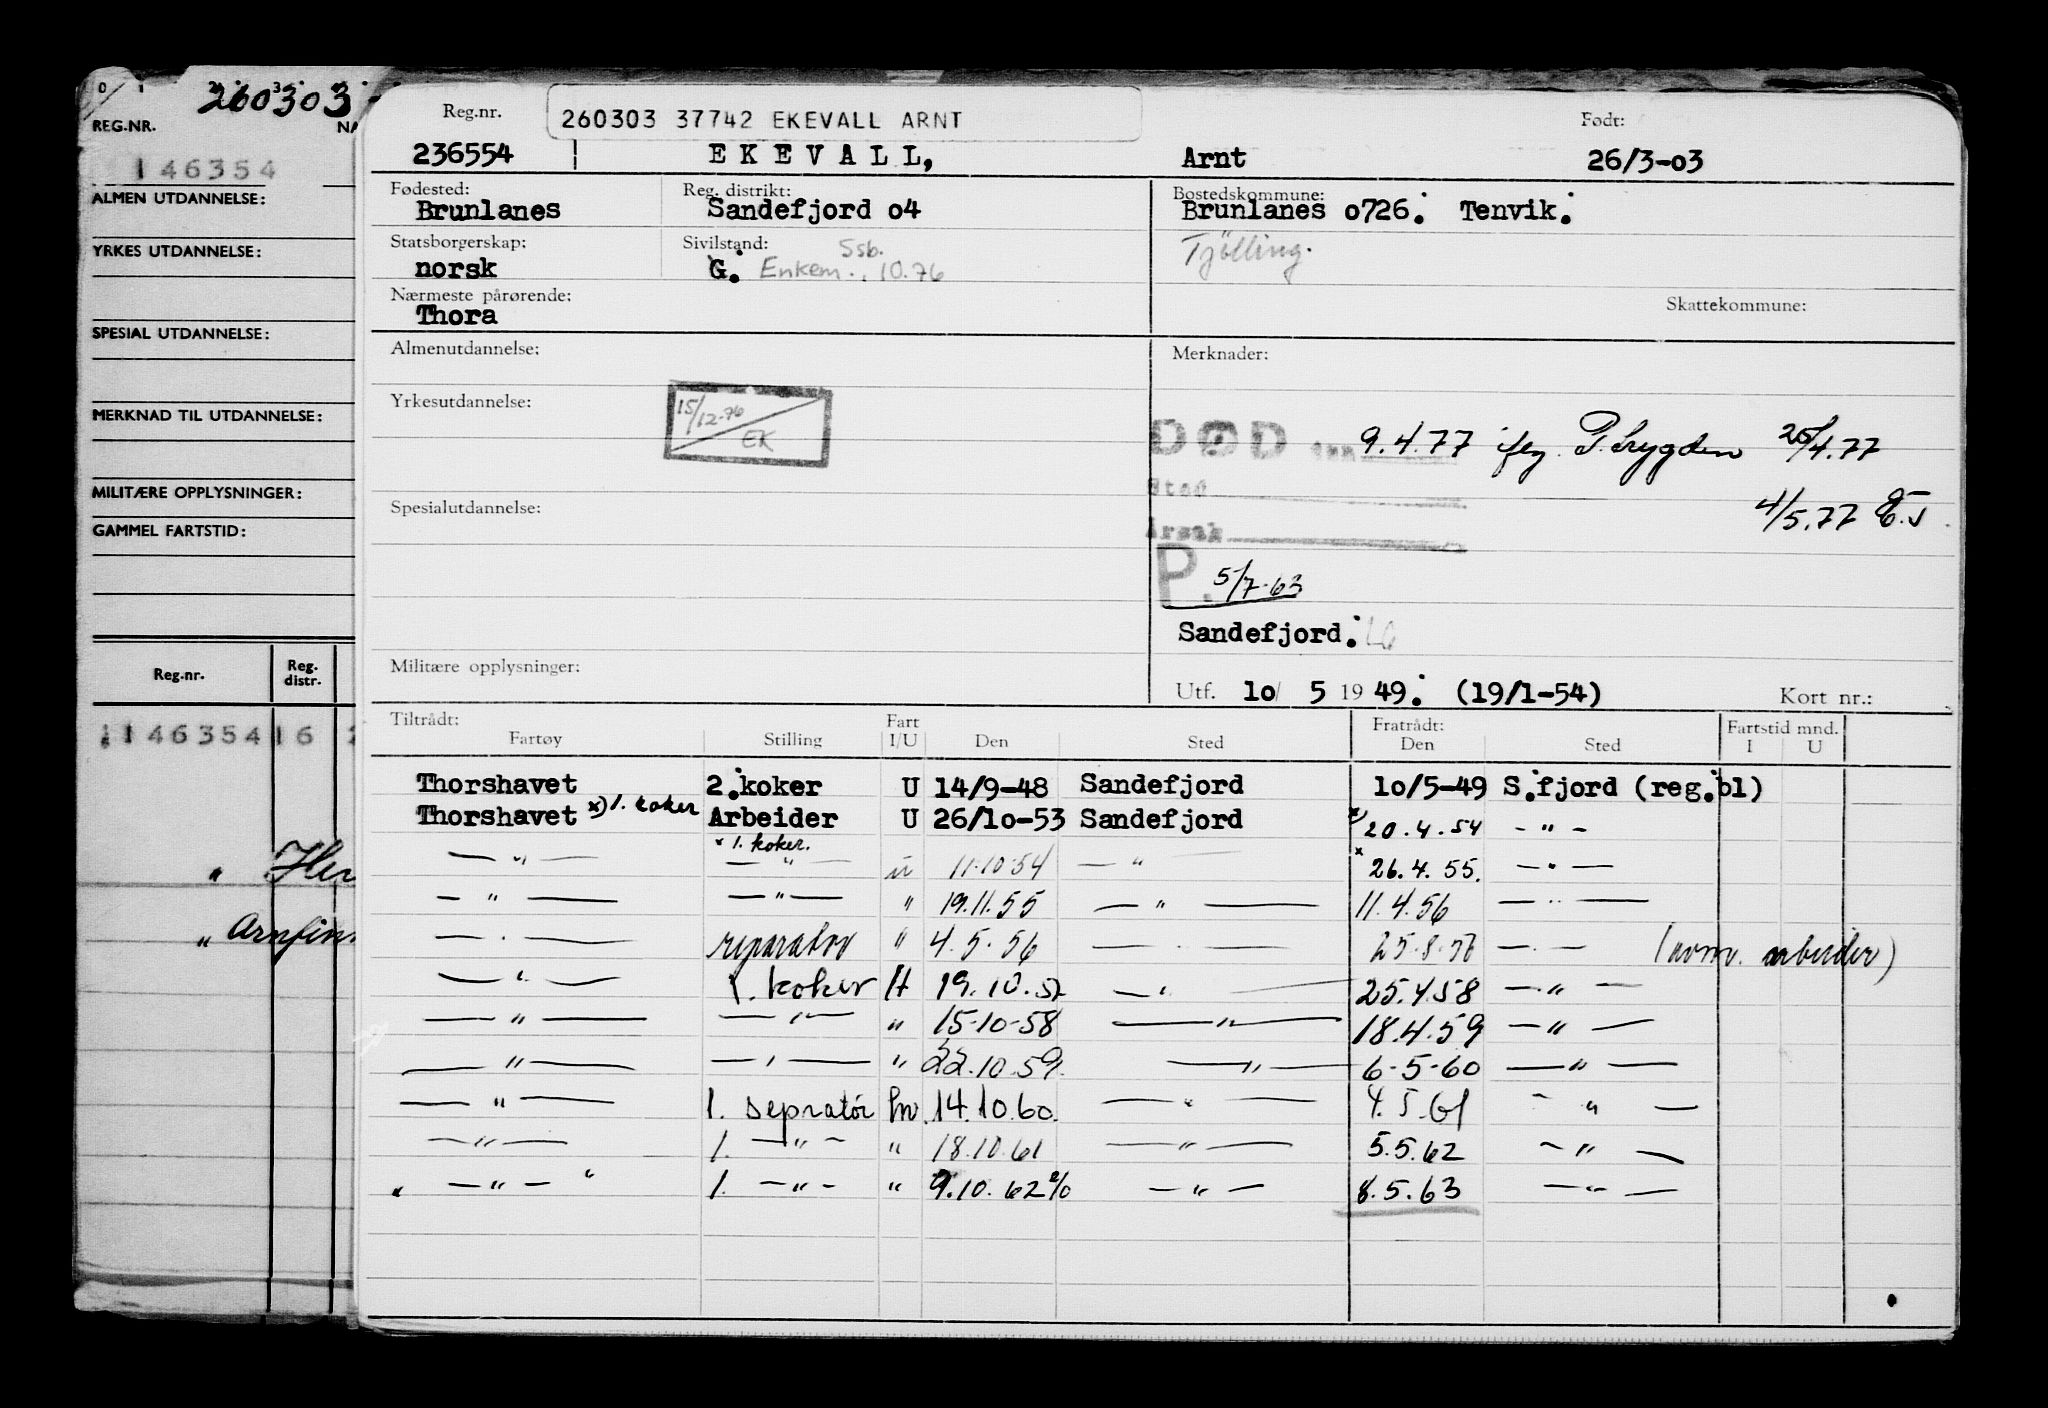 260303
REG.NR.
146354
ALMEN UTDANNELSE:
YRKES UTDANNELSE:
SPESIAL UTDANNELSE:
MERKNAD TIL UTDANNELSE:
MILITÆRE OPPLYSNINGER:
GAMMEL FARTSTID:
Reg.nr. Reg. distr.
146354 16
Reg.nr. 260303 37742 EKEVALL ARNT Født:
236554 EKEVALL, Arnt 26/3-03
Fødested: Reg. distrikt: Bostedskommune:
Brunlanes Sandefjord o4 Brunlanes o726. Tenvik.
Statsborgerskap: Sivilstand: Ssb. Tjölling.
norsk G. Enkem. 10.76
Nærmeste pårørende: Skattekommune:
Thora
Almenutdannelse: Merknader:
Yrkesutdannelse: 15/12-76 EK
DØD den 9.4.77 25/4.77
Sted 4/5.77
Spesialutdannelse:
Årsak
P. 5/7-63
Sandefjord.
Militære opplysninger:
Utf. 1o/ 5 19 49. (19/1-54) Kort nr.:
Tiltrådt: Fart Fratrådt: Fartstid mnd.
Fartøy Stilling I/U Den Sted Den Sted I U
Thorshavet 2.koker U 14/9-48 Sandefjord 1o/5-49 S.fjord (reg.bl)
Thorshavet x) 1. koker Arbeider U 26/1o-53 Sandefjord x) 20.4.54 - " -
x 1. koker.
— " — — " — u 11.10.54 — " — x 26.4.55. — " —
— " — — " — " 19.11.55 — " — 11.4.56 — " —
— " — reparatør " 4.5.56 — " — — " — arbeider)
— " — 1. koker H 19.10.57 — " — 25.4.58 — " —
— " — — " — " 15-10-58 — " — 18.4.59 — " —
— " — — " — " 22.10.59. — " — 6-5-60 — " —
— " — 1. sepratør 14.10.60. — " — 4.5.61 — " —
— " — 1. — " — " 18.10.61 — " — 5.5.62 — " —
" — " — " 1. — " — " 9.10.62 — " — 8.5.63 — " —